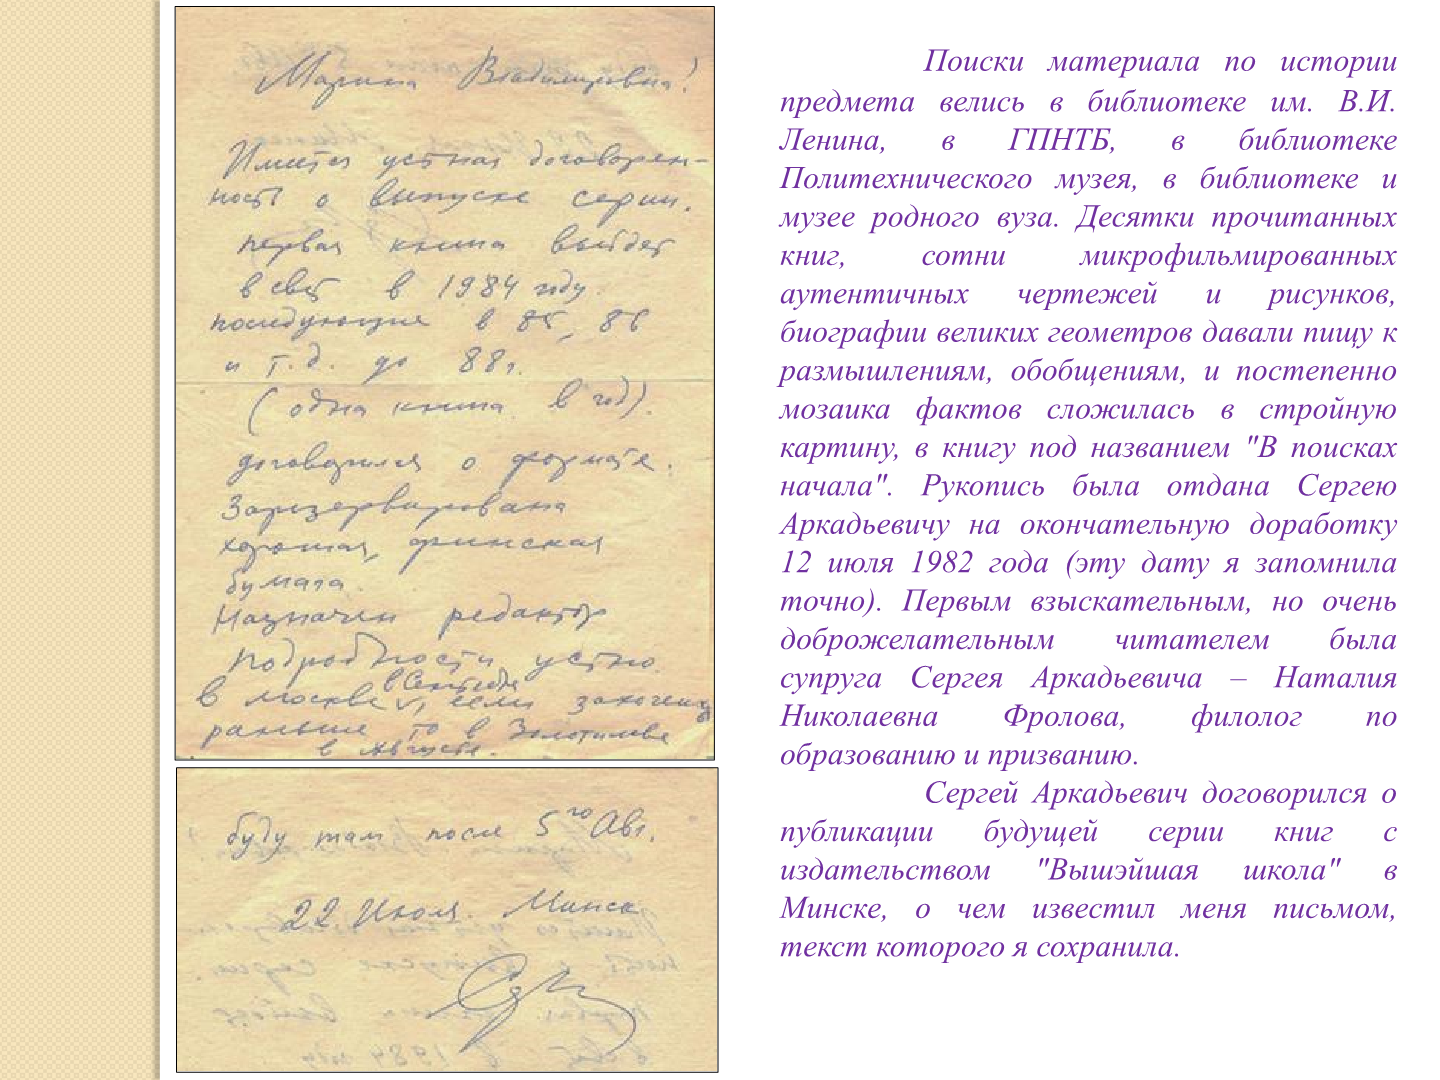 Марина Владимировна!
Имеется устная договорен-
ность о выпуске серии.
первая книга выйдет
в свет в 1984 году.
последующие в 85, 86
и т.д. до 88г.
(одна книга в год).
договорился о формате.
Зарезервирована
хорошая, финская
бумага.
Назначен редактор
Подробности устно.
в Москве в Сентябре, если захочешь
раньше то в
в Августе.
буду там после 5го Авг.
22 Июля. Минск
Поиски материала по истории
предмета велись в библиотеке им. В.И.
Ленина, в ГПНТБ, в библиотеке
Политехнического музея, в библиотеке и
музее родного вуза. Десятки прочитанных
книг, сотни микрофильмированных
аутентичных чертежей и рисунков,
биографии великих геометров давали пищу к
размышлениям, обобщениям, и постепенно
мозаика фактов сложилась в стройную
картину, в книгу под названием "В поисках
начала". Рукопись была отдана Сергею
Аркадьевичу на окончательную доработку
12 июля 1982 года (эту дату я запомнила
точно). Первым взыскательным, но очень
доброжелательным читателем была
супруга Сергея Аркадьевича – Наталия
Николаевна Фролова, филолог по
образованию и призванию.
Сергей Аркадьевич договорился о
публикации будущей серии книг с
издательством "Вышэйшая школа" в
Минске, о чем известил меня письмом,
текст которого я сохранила.